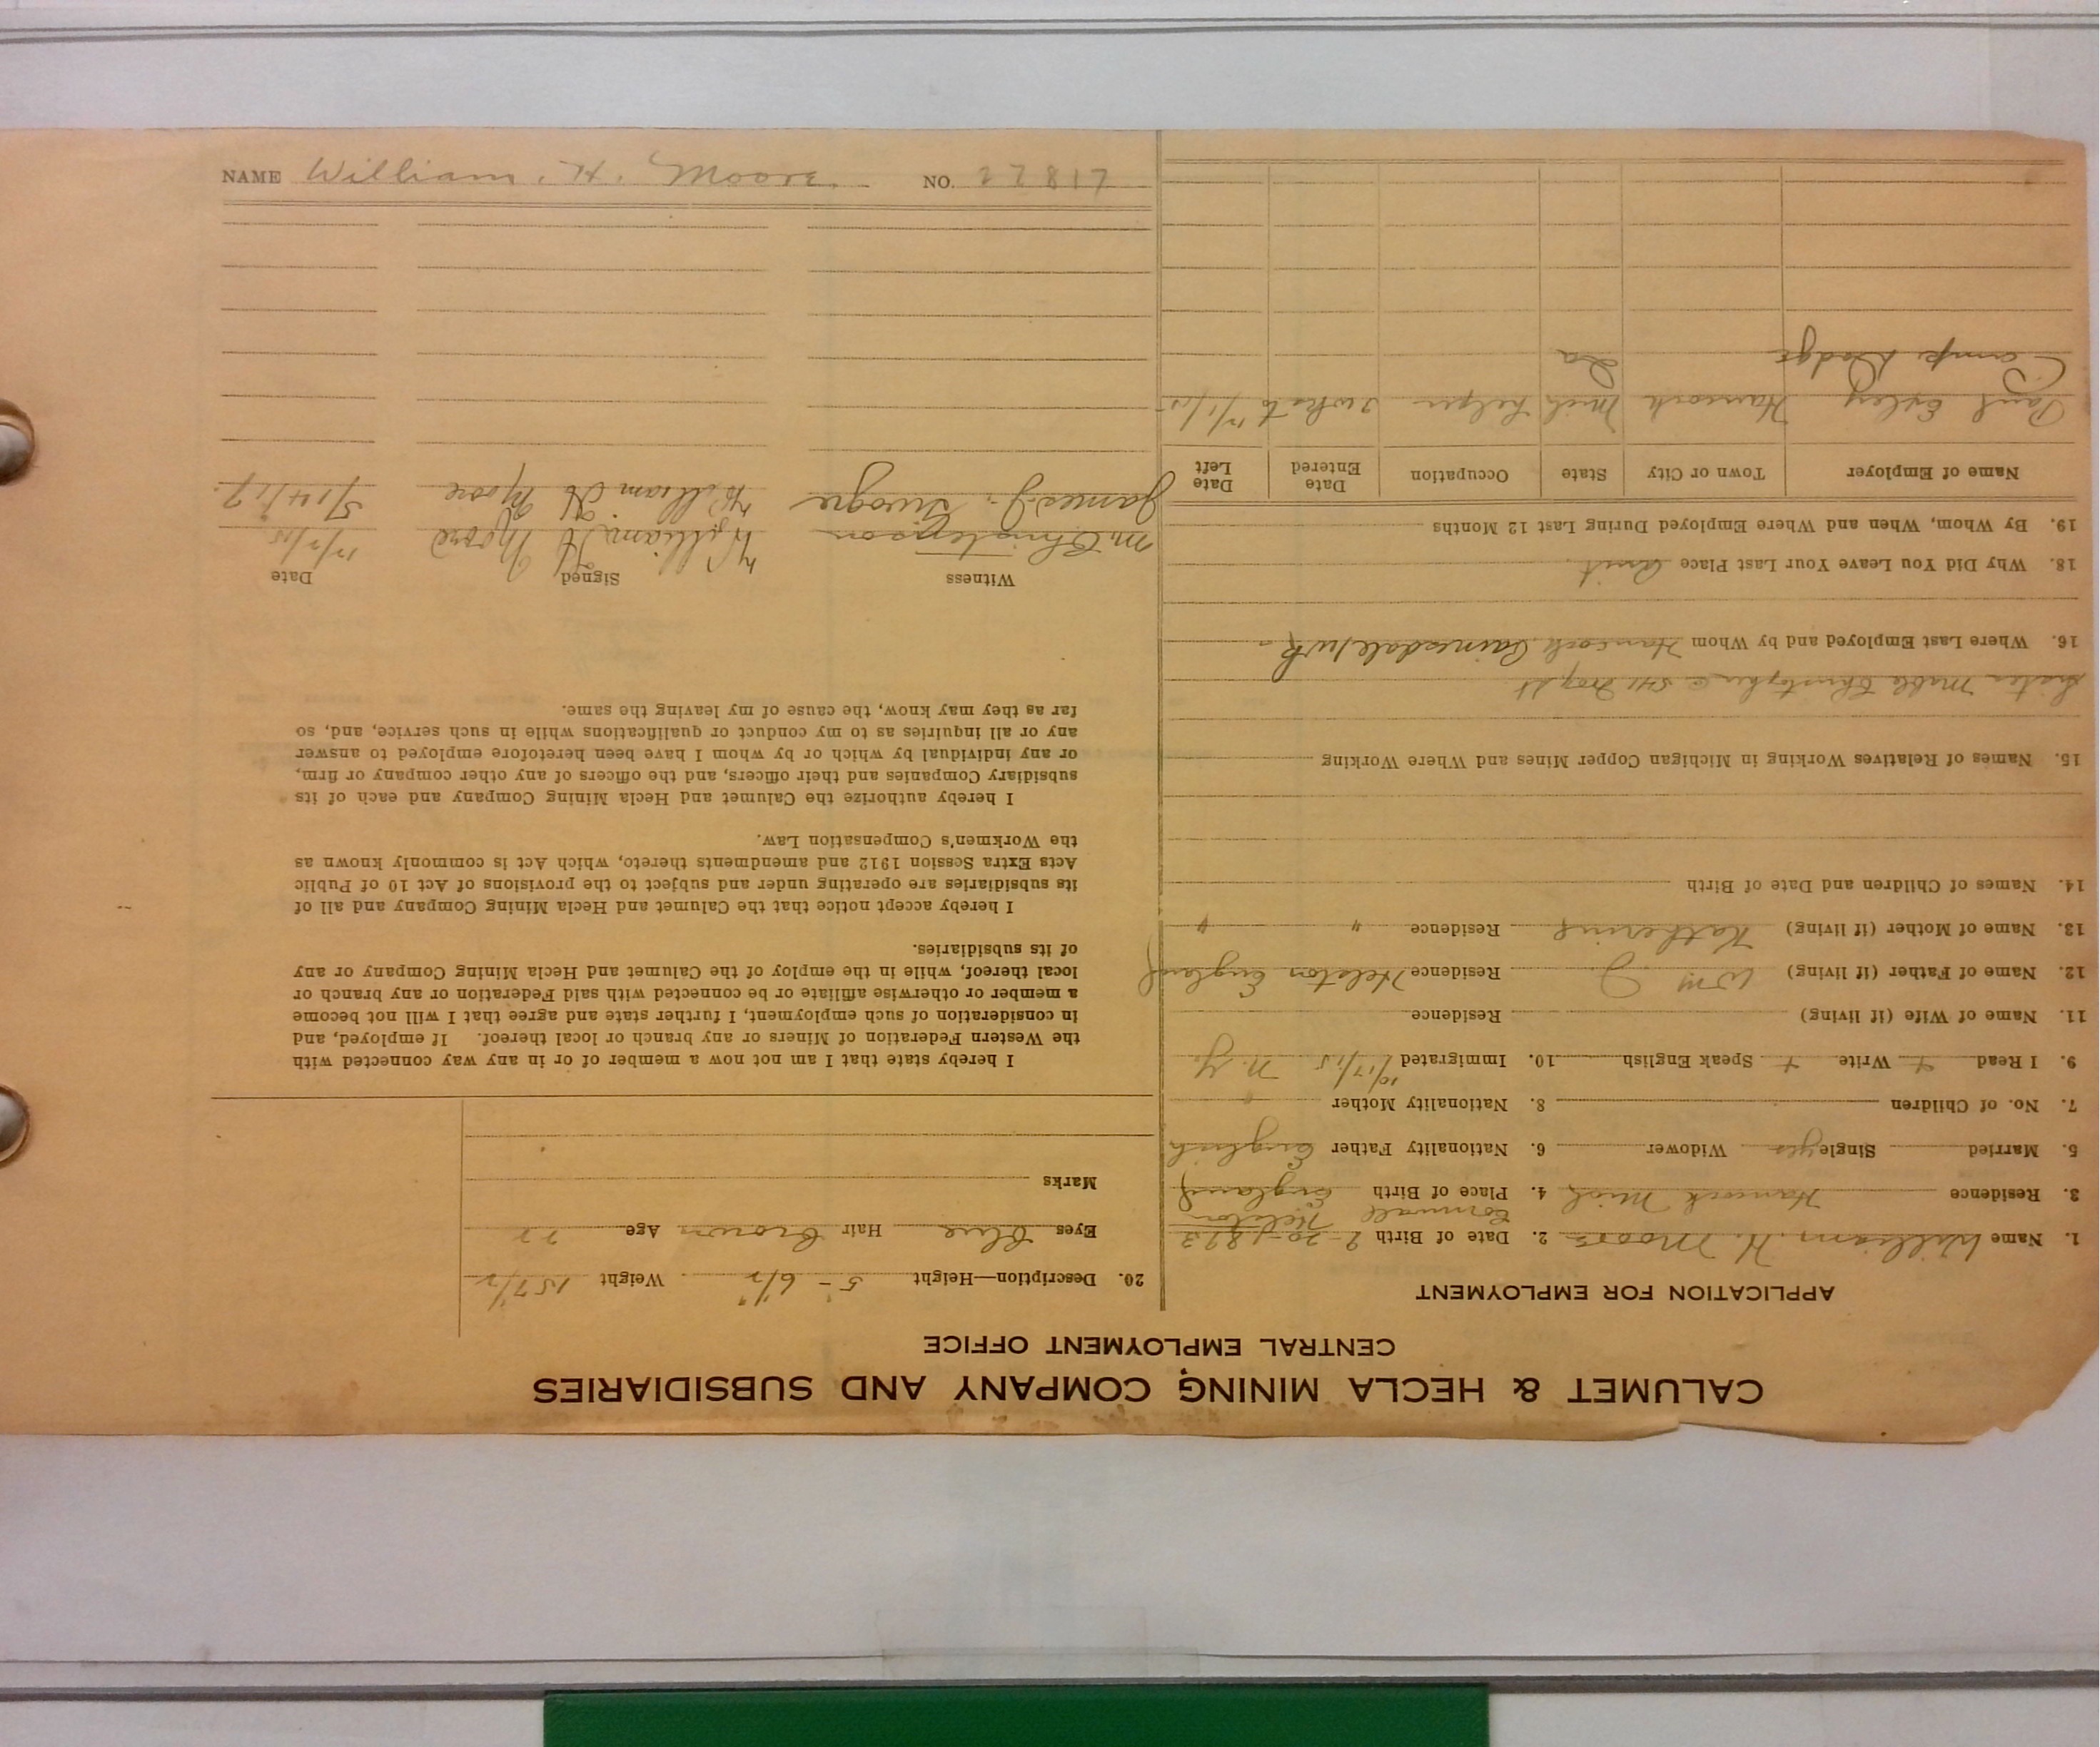 CALUMET & HECLA MINING COMPANY AND SUBSIDIARIES
CENTRAL EMPLOYMENT OFFICE
APPLICATION FOR EMPLOYMENT
1. Name William H. Moore 2. Date of Birth 9-20-1893
Cornwall Helston
3. Residence Hancock Mich 4. Place of Birth England
5. Married Single yes Widower 6. Nationality Father English
7. No. of Children 8. Nationality Mother "
9. I Read + Write + Speak English 10. Immigrated 10/17/15 N.Y.
11. Name of Wife (if living) Residence
12. Name of Father (if living) Wm J. Residence Helston England
13. Name of Mother (if living) Katherine Residence " "
14. Names of Children and Date of Birth
15. Names of Relatives Working in Michigan Copper Mines and Where Working
Sister Mable Christopher @ 541 Troy St
16. Where Last Employed and by Whom Hancock
18. Why Did You Leave Your Last Place
19. By Whom, When and Where Employed During Last 12 Months
Name of Employer Town or City State Occupation Date Entered Date Left
Paul Hancock Mich helper 12/1/15
Camp Dodge Ia
20. Description—Height 5-6 1/2" Weight 157 1/2
Eyes Blue Hair Brown Age 22
Marks
I hereby state that I am not now a member of or in any way connected with
the Western Federation of Miners or any branch or local thereof. If employed, and
in consideration of such employment, I further state and agree that I will not become
a member or otherwise affiliate or be connected with said Federation or any branch or
local thereof, while in the employ of the Calumet and Hecla Mining Company or any
of its subsidiaries.
I hereby accept notice that the Calumet and Hecla Mining Company and all of
its subsidiaries are operating under and subject to the provisions of Act 10 of Public
Acts Extra Session 1912 and amendments thereto, which Act is commonly known as
the Workmen's Compensation Law.
I hereby authorize the Calumet and Hecla Mining Company and each of its
subsidiary Companies and their officers, and the officers of any other company or firm,
or any individual by which or by whom I have been heretofore employed to answer
any or all inquiries as to my conduct or qualifications while in such service, and, so
far as they may know, the cause of my leaving the same.
Witness Signed Date
M. Christenson William H Moore 12/2/15
James J. William H Moore 5/14/17.
NAME William. H. Moore. NO. 27817